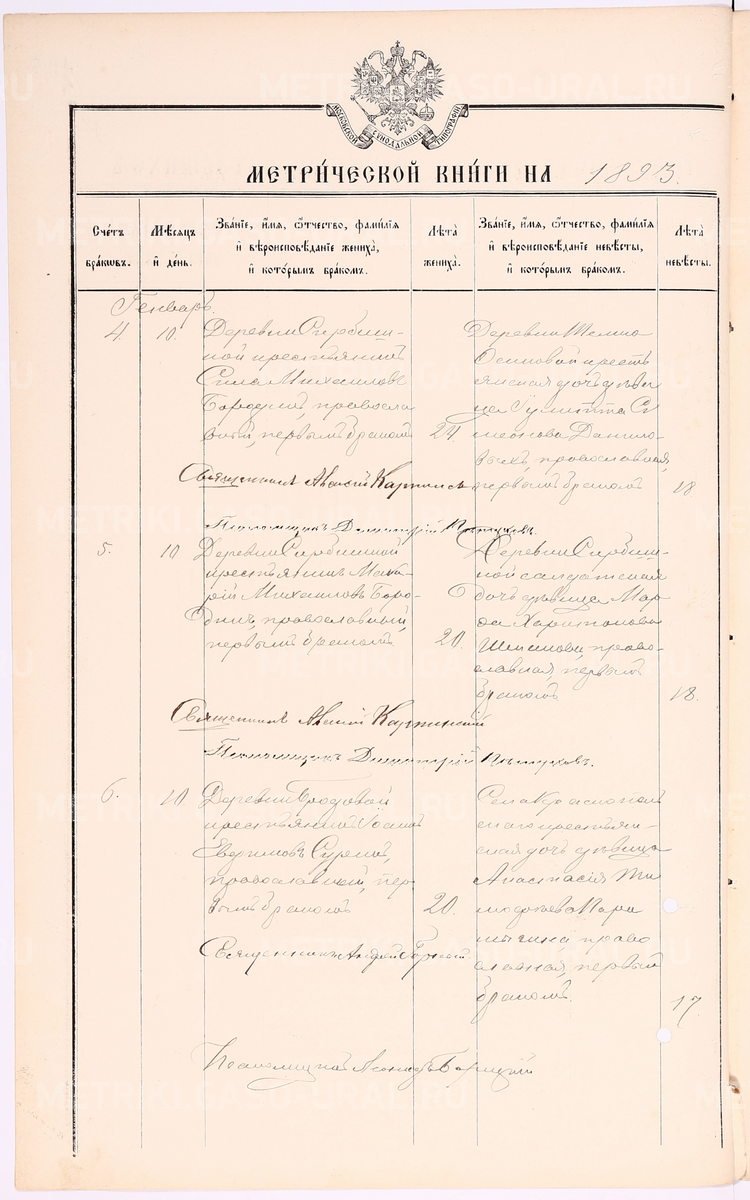 МОСКОВСКОЙ СѴНОДАЛЬНОЙ ТИПОГРАФІИ
МЕТРИ́ЧЕСКОЙ КНИ́ГИ НА 1893.
Сче́тъ бра́кѡвъ.
Мѣ́сяцъ и҆ де́нь.
Зва́нїе, и҆́мя, ѻ҆́тчество, фами́лїя и҆ вѣроисповѣ́данїе жениха̀, и҆ кото́рымъ бра́комъ.
Лѣта̀ жениха̀.
Зва́нїе, и҆́мя, ѻ҆́тчество, фами́лїя и҆ вѣроисповѣ́данїе невѣ́сты, и҆ кото́рымъ бра́комъ.
Лѣта̀ невѣ́сты.
Генварь.
4. 10.
Деревни
ной крестьянинъ
Сила Михаиловъ
Бородинъ, правосла
вный, первымъ бракомъ
24
Деревни
Осиновой кресть
янская дочь дѣви
ца Іулитта Си
меонова Данило
выхъ, православная,
первымъ бракомъ
18
Священникъ Алексій
Псаломщикъ Димитрій
5. 10
Деревни
крестьянинъ Мака
рій Михаиловъ Боро-
динъ, православный,
первымъ бракомъ
20.
Деревни
ной солдатская
дочь дѣвица Мар
ѳа Харитонова
право-
славная, первымъ
бракомъ
18.
Священникъ Алексій
Псаломщикъ Димитрій
6. 10.
Деревни Бродовой
крестьянинъ Іоаннъ
Евѳимовъ
православный, пер
вымъ бракомъ
20.
Села Краснополь
скаго крестьян-
ская дочь дѣвица
Анастасія Ти
моѳеева
право
славная, первымъ
бракомъ.
17.
Священникъ Андрей
Псаломщикъ